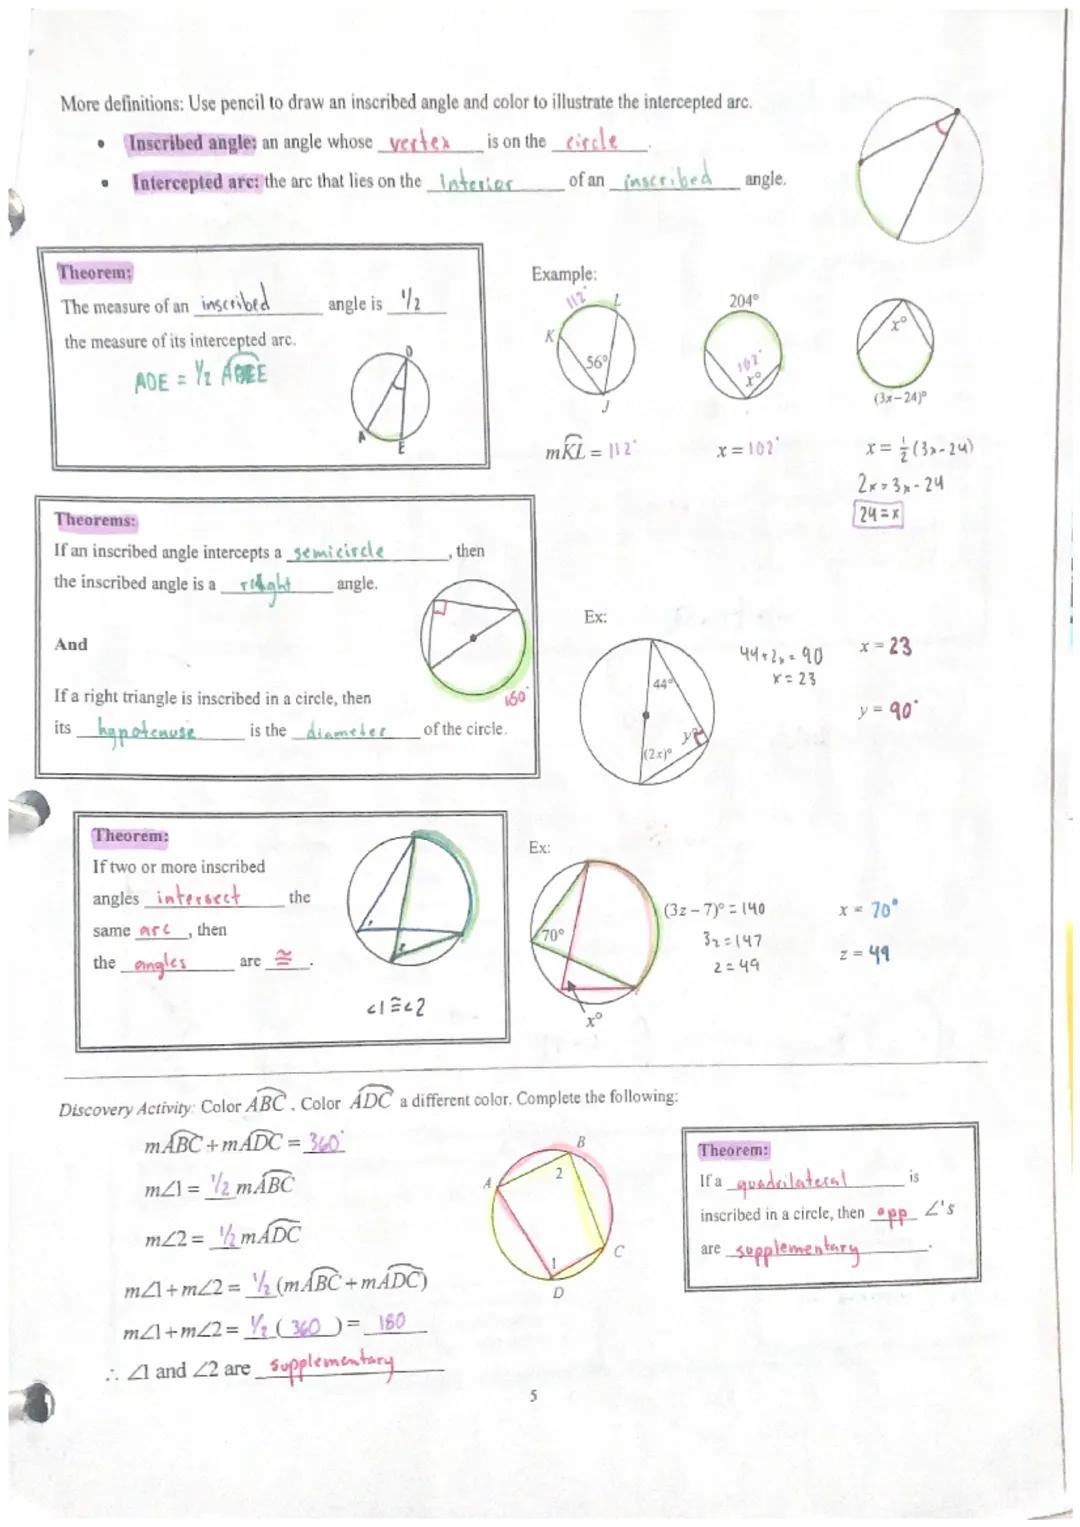 More definitions: Use pencil to draw an inscribed angle and color to illustrate the intercepted arc.
• Inscribed angle: an angle whose vertex is on the circle.
• Intercepted arc: the arc that lies on the Interior of an inscribed angle.
Theorem:
The measure of an inscribed angle is 1/2
the measure of its intercepted arc.
ADE = 1/2
D
A
E
Example:
112°
L
K
56°
J
mKL = 112°
204°
102°
x°
x = 102°
x°
(3x-24)°
x = 1/2 (3x-24)
2x = 3x - 24
24 = x
Theorems:
If an inscribed angle intercepts a semicircle, then
the inscribed angle is a right angle.
And
If a right triangle is inscribed in a circle, then
its hypotenuse is the diameter of the circle.
180°
Ex:
44°
(2x)°
y°
44 + 2x = 90
x = 23
x = 23
y = 90°
Theorem:
If two or more inscribed
angles intersect the
same arc, then
the angles are ≅.
∠1 ≅ ∠2
Ex:
70°
x°
(3z - 7)° = 140
3z = 147
z = 49
x = 70°
z = 49
Discovery Activity: Color ABC. Color ADC a different color. Complete the following:
mABC + mADC = 360°
m∠1 = 1/2 mABC
m∠2 = 1/2 mADC
m∠1 + m∠2 = 1/2 (mABC + mADC)
m∠1 + m∠2 = 1/2 ( 360 ) = 180
∴ ∠1 and ∠2 are supplementary
A
B
2
C
1
D
Theorem:
If a quadrilateral is
inscribed in a circle, then opp ∠'s
are supplementary.
5